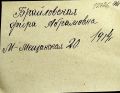 Брайловская
фира Абрамовна
М-Мещанская 20 1914